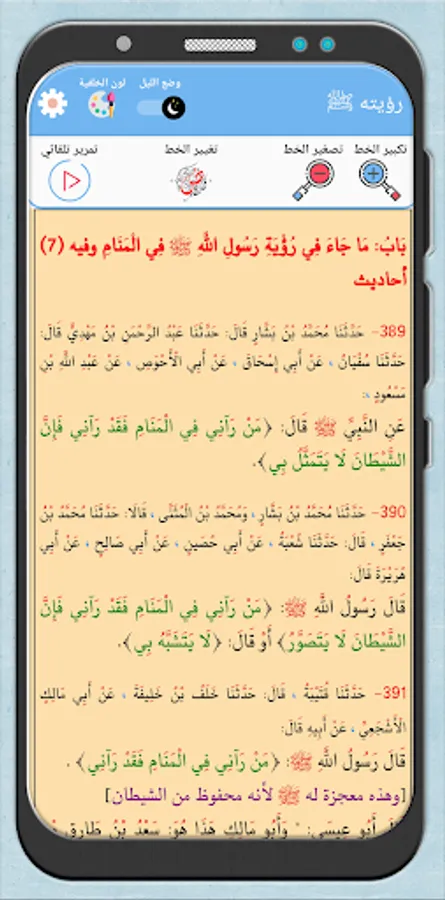 وضع الليل
لون الخلفية
رؤيته ﷺ
تكبير الخط
تصغير الخط
تغيير الخط
تمرير تلقائي
بَابُ: مَا جَاءَ فِي رُؤْيَةِ رَسُولِ اللَّهِ ﷺ فِي الْمَنَامِ وفيه (7)
أحاديث
389- حَدَّثَنَا مُحَمَّدُ بْنُ بَشَّارٍ قَالَ: حَدَّثَنَا عَبْدُ الرَّحْمَنِ بْنُ مَهْدِيٍّ قَالَ:
حَدَّثَنَا سُفْيَانُ ، عَنْ أَبِي إِسْحَاقَ ، عَنْ أَبِي الْأَحْوَصِ ، عَنْ عَبْدِ اللَّهِ بْنِ
مَسْعُودٍ ،:
عَنِ النَّبِيِّ ﷺ قَالَ: ﴿مَنْ رَآنِي فِي الْمَنَامِ فَقَدْ رَآنِي فَإِنَّ
الشَّيْطَانَ لَا يَتَمَثَّلُ بِي﴾.
390- حَدَّثَنَا مُحَمَّدُ بْنُ بَشَّارٍ ، وَمُحَمَّدُ بْنُ الْمُثَنَّى ، قَالَا: حَدَّثَنَا مُحَمَّدُ بْنُ
جَعْفَرٍ ، قَالَ: حَدَّثَنَا شُعْبَةُ ، عَنْ أَبِي حَصِينٍ ، عَنْ أَبِي صَالِحٍ ، عَنْ أَبِي
هُرَيْرَةَ قَالَ:
قَالَ رَسُولُ اللَّهِ ﷺ: ﴿مَنْ رَآنِي فِي الْمَنَامِ فَقَدْ رَآنِي فَإِنَّ
الشَّيْطَانَ لَا يَتَصَوَّرُ﴾ أَوْ قَالَ: ﴿لَا يَتَشَبَّهُ بِي﴾.
391- حَدَّثَنَا قُتَيْبَةُ ، قَالَ: حَدَّثَنَا خَلَفُ بْنُ خَلِيفَةَ ، عَنْ أَبِي مَالِكٍ
الْأَشْجَعِيِّ ، عَنْ أَبِيهِ قَالَ:
قَالَ رَسُولُ اللَّهِ ﷺ: ﴿مَنْ رَآنِي فِي الْمَنَامِ فَقَدْ رَآنِي﴾ .
[وهذه معجزة له ﷺ لأنه محفوظ من الشيطان]
أَبُو عِيسَى: " وَأَبُو مَالِكٍ هَذَا هُوَ: سَعْدُ بْنُ طَارِقِ